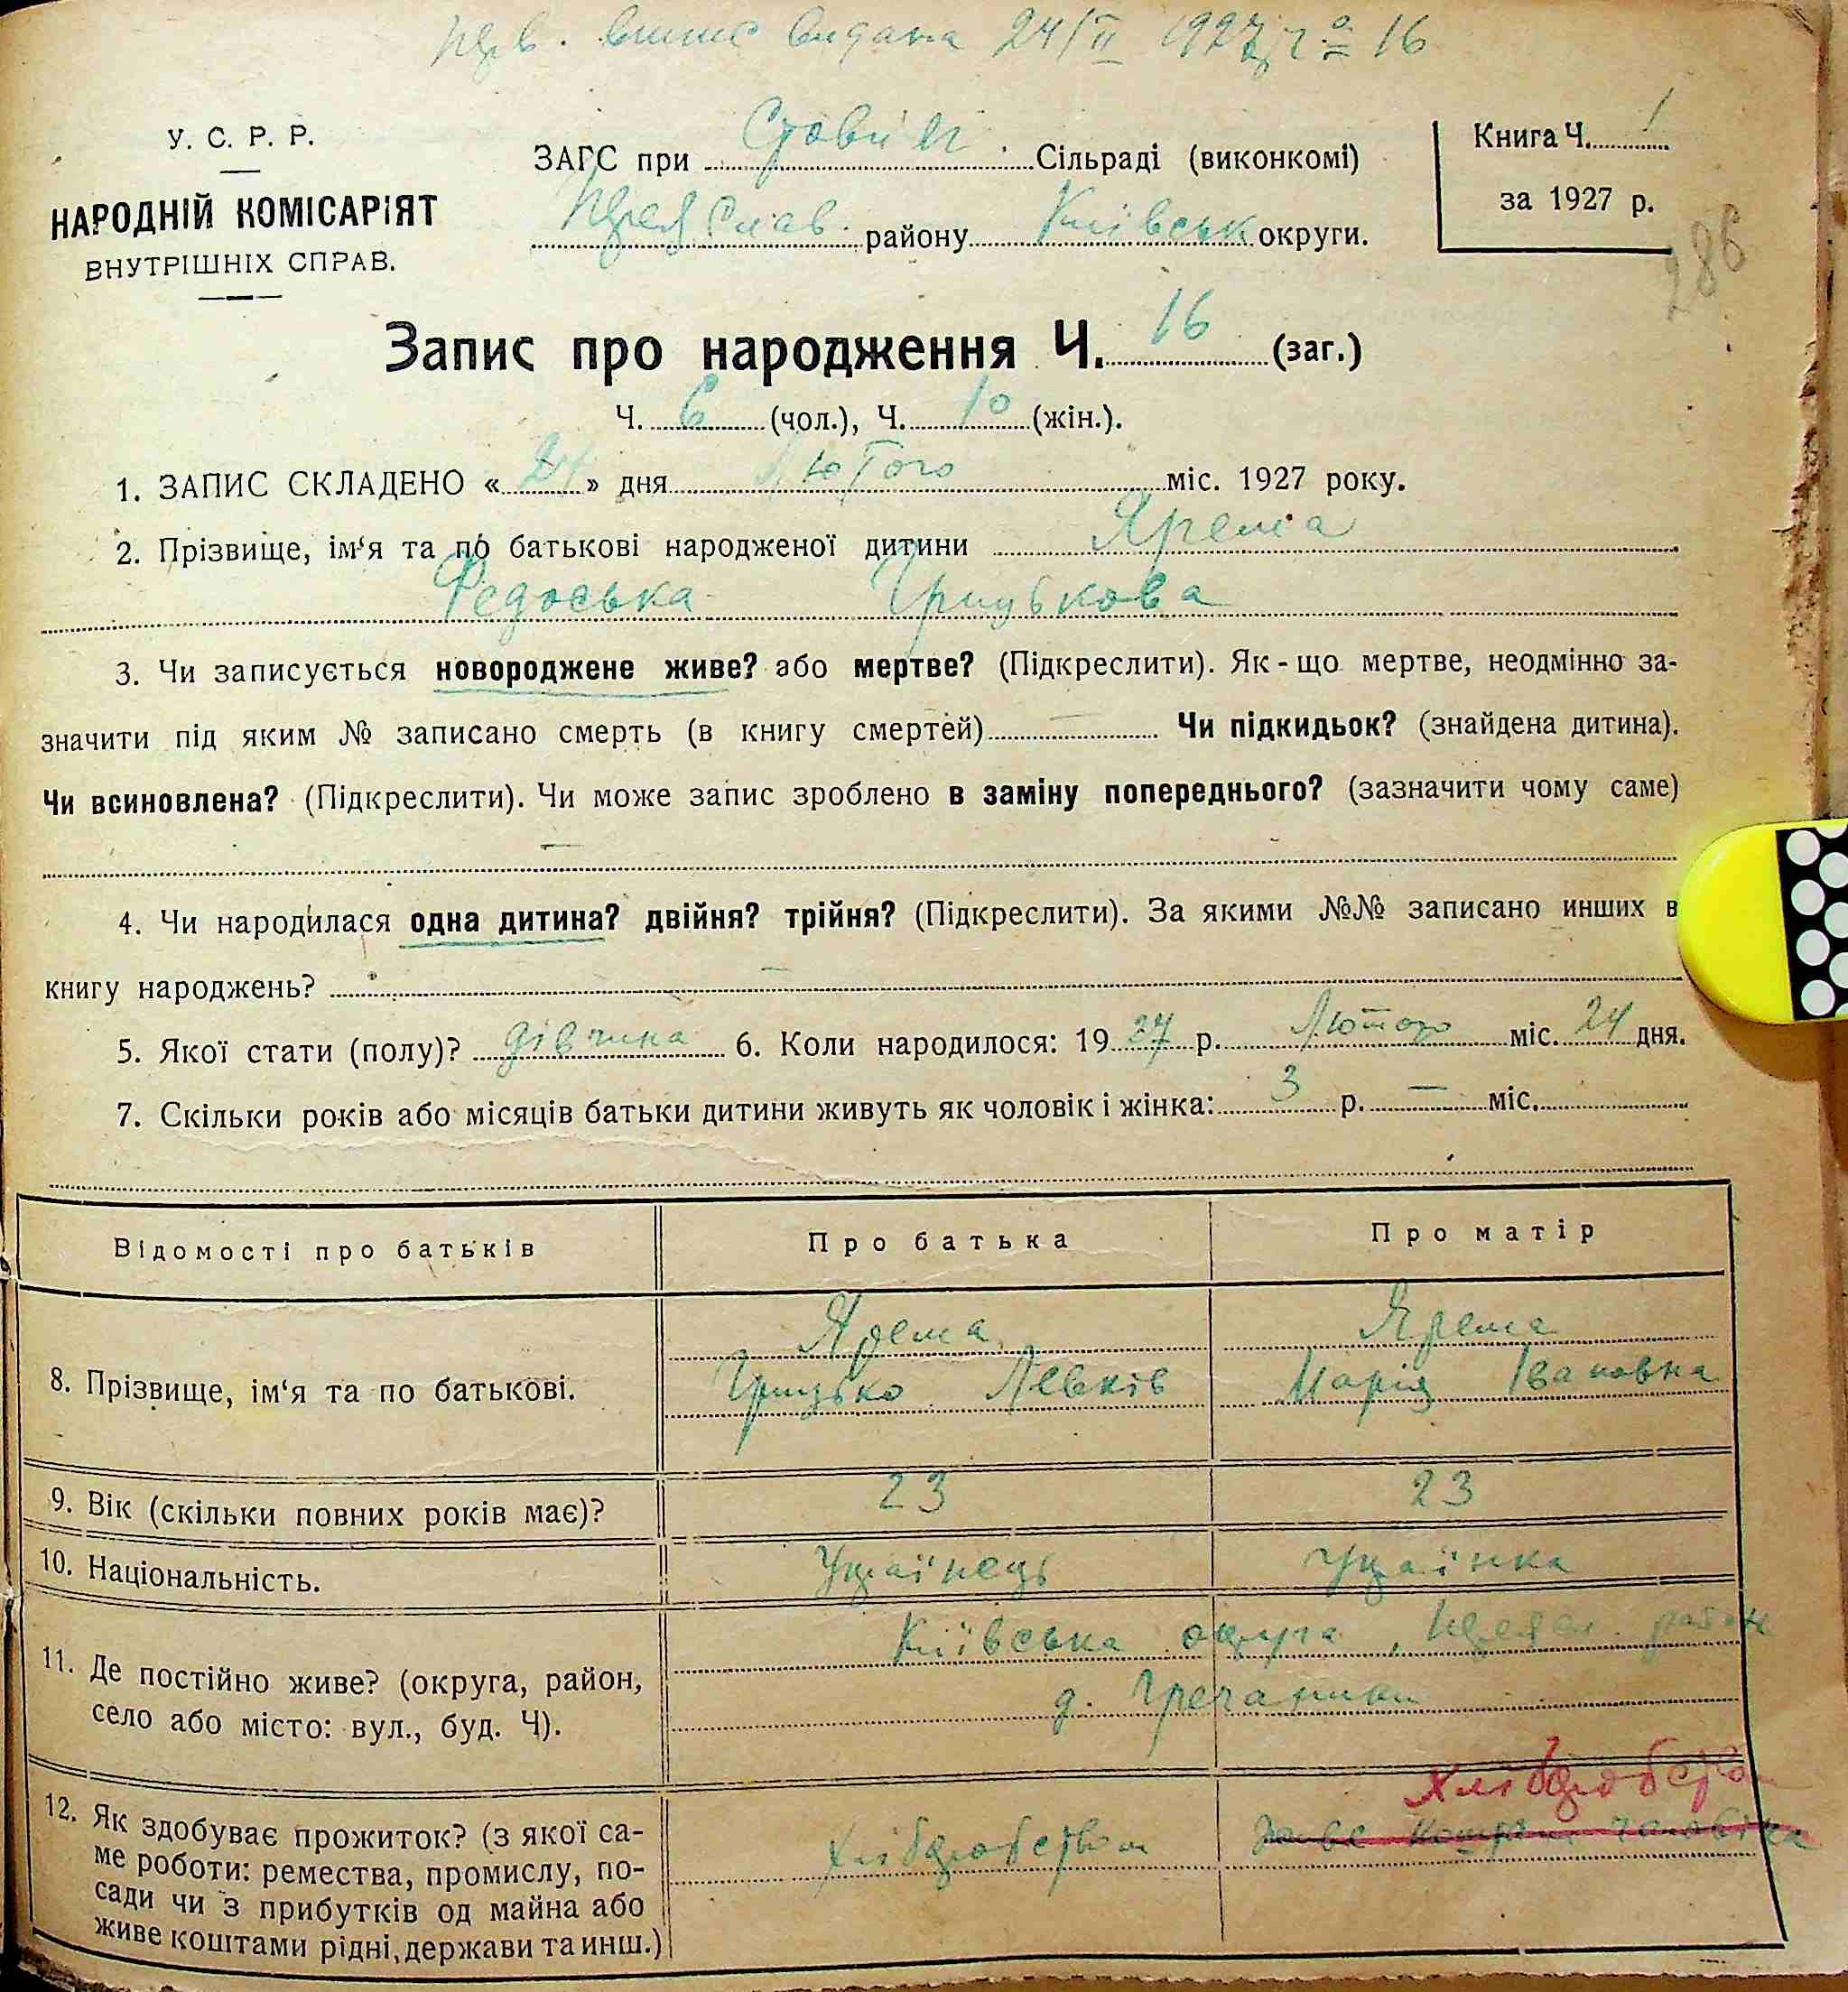 випис видана 24/II 1927 р. № 16
У. С. Р. Р.
НАРОДНІЙ КОМІСАРІЯТ
ВНУТРІШНІХ СПРАВ.
ЗАГС при Сільраді (виконкомі)
Переяслав. району Київськ округи.
Книга Ч. 1
за 1927 р.
286
Запис про народження Ч. 16 (заг.)
Ч. 6 (чол.), Ч. 10 (жін.).
1. ЗАПИС СКЛАДЕНО « 24 » дня Лютого міс. 1927 року.
2. Прізвище, ім‘я та по батькові народженої дитини Ярема
Федоська Грицькова
3. Чи записується новороджене живе? або мертве? (Підкреслити). Як-що мертве, неодмінно за-
значити під яким № записано смерть (в книгу смертей) — Чи підкидьок? (знайдена дитина).
Чи всиновлена? (Підкреслити). Чи може запис зроблено в заміну попереднього? (зазначити чому саме)
—
4. Чи народилася одна дитина? двійня? трійня? (Підкреслити). За якими №№ записано инших в
книгу народжень? —
5. Якої стати (полу)? дівчина 6. Коли народилося: 1927 р. Лютого міс. 24 дня.
7. Скільки років або місяців батьки дитини живуть як чоловік і жінка: 3 р. — міс.
Відомості про батьків Про батька Про матір
Ярема Ярема
8. Прізвище, ім‘я та по батькові. Грицько Левків Марія Івановна
9. Вік (скільки повних років має)? 23 23
10. Національність. Українець Українка
11. Де постійно живе? (округа, район,
село або місто: вул., буд. Ч).
Київська округа, Переясл. район
д. Гречаники
12. Як здобуває прожиток? (з якої са-
ме роботи: ремества, промислу, по-
сади чи з прибутків од майна або
живе коштами рідні, держави та инш.)
Хліборобством
Хліборобством
коштом чоловіка